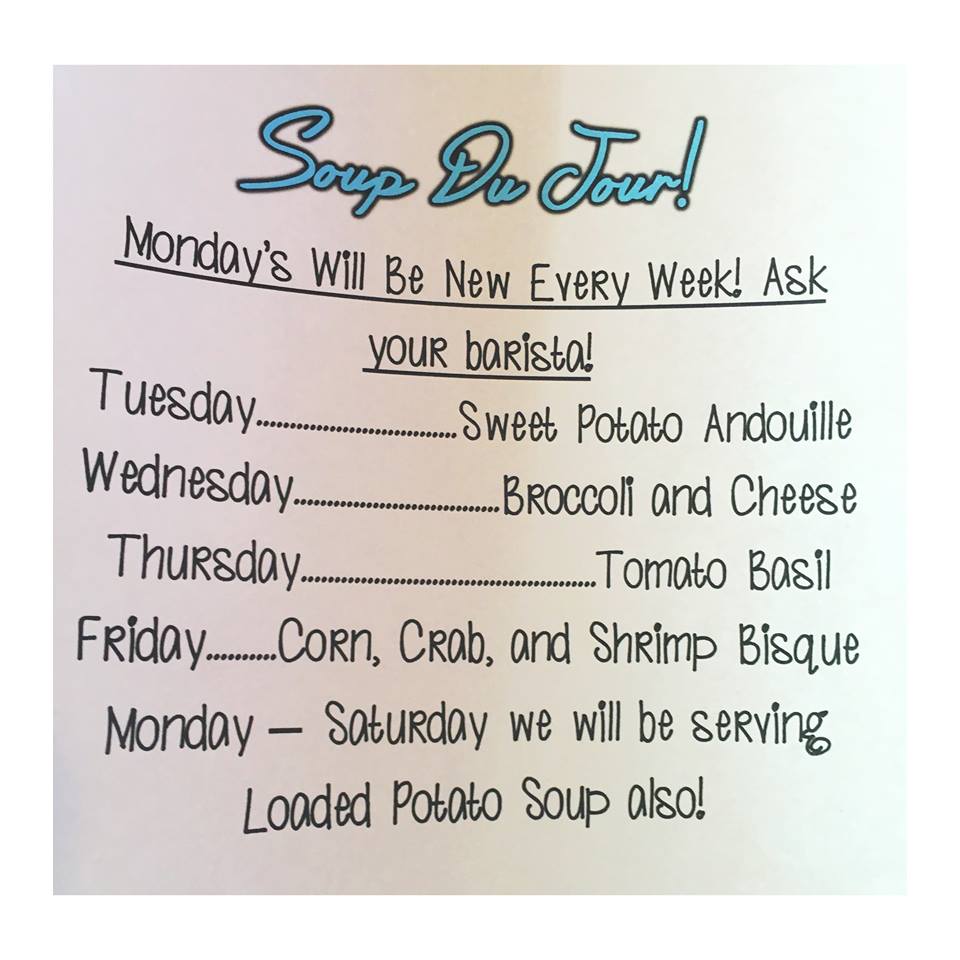 Soup Du Jour!
Monday's Will Be New Every Week! Ask
your barista!
Tuesday..............................Sweet Potato Andouille
Wednesday...............................Broccoli and Cheese
Thursday............................................Tomato Basil
Friday...........Corn, Crab, and Shrimp Bisque
Monday – Saturday we will be serving
Loaded Potato Soup also!